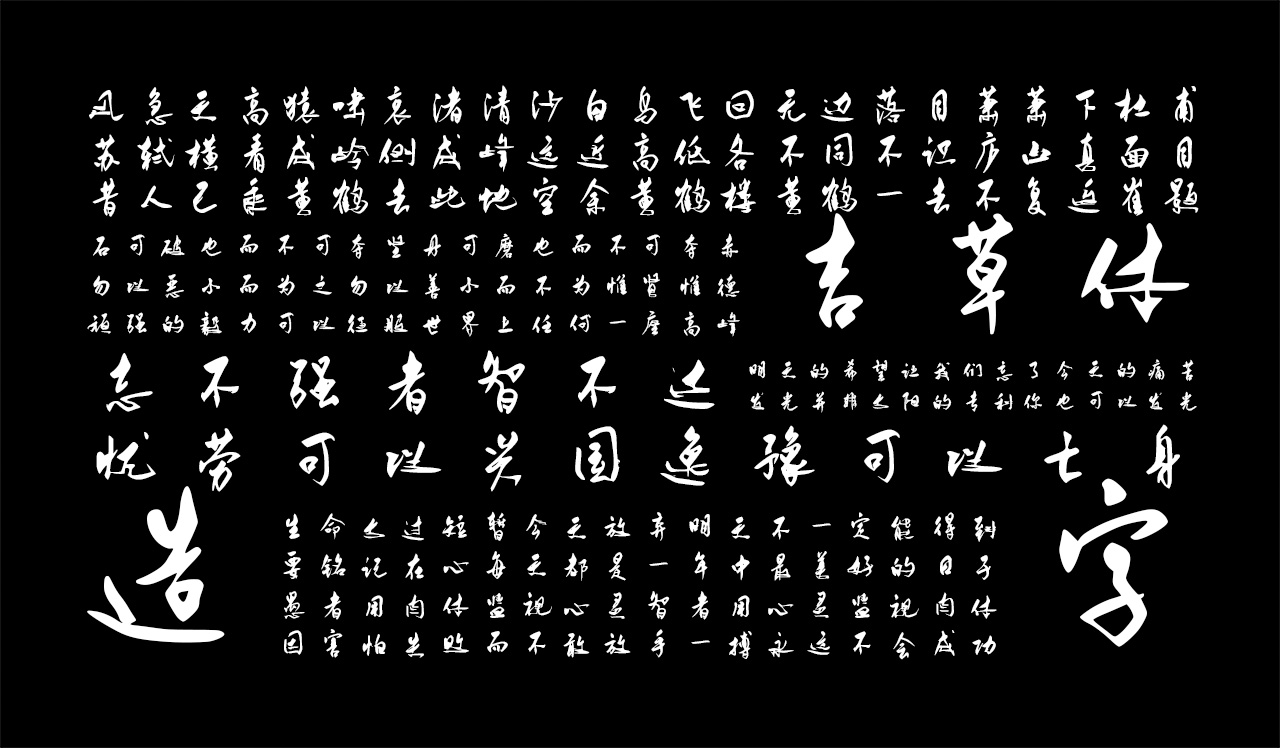 风急天高猿啸哀渚清沙白鸟飞回无边落目萧萧下杜甫
苏轼横看成岭侧成峰远近高低各不同不识庐山真面目
昔人已乘黄鹤去此地空余黄鹤楼黄鹤一去不复返崔题
石可破也而不可夺坚丹可磨也而不可夺赤
勿以恶小而为之勿以善小而不为惟贤惟德
顽强的毅力可以征服世界上任何一座高峰
吉草体
志不强者智不达
明天的希望让我们忘了今天的痛苦
发光并非太阳的专利你也可以发光
忧劳可以兴国逸豫可以亡身
造
字
生命太过短暂今天放弃明天不一定能得到
要铭记在心每天都是一年中最美好的日子
愚者用肉体监视心灵智者用心灵监视肉体
因害怕失败而不敢放手一搏永远不会成功